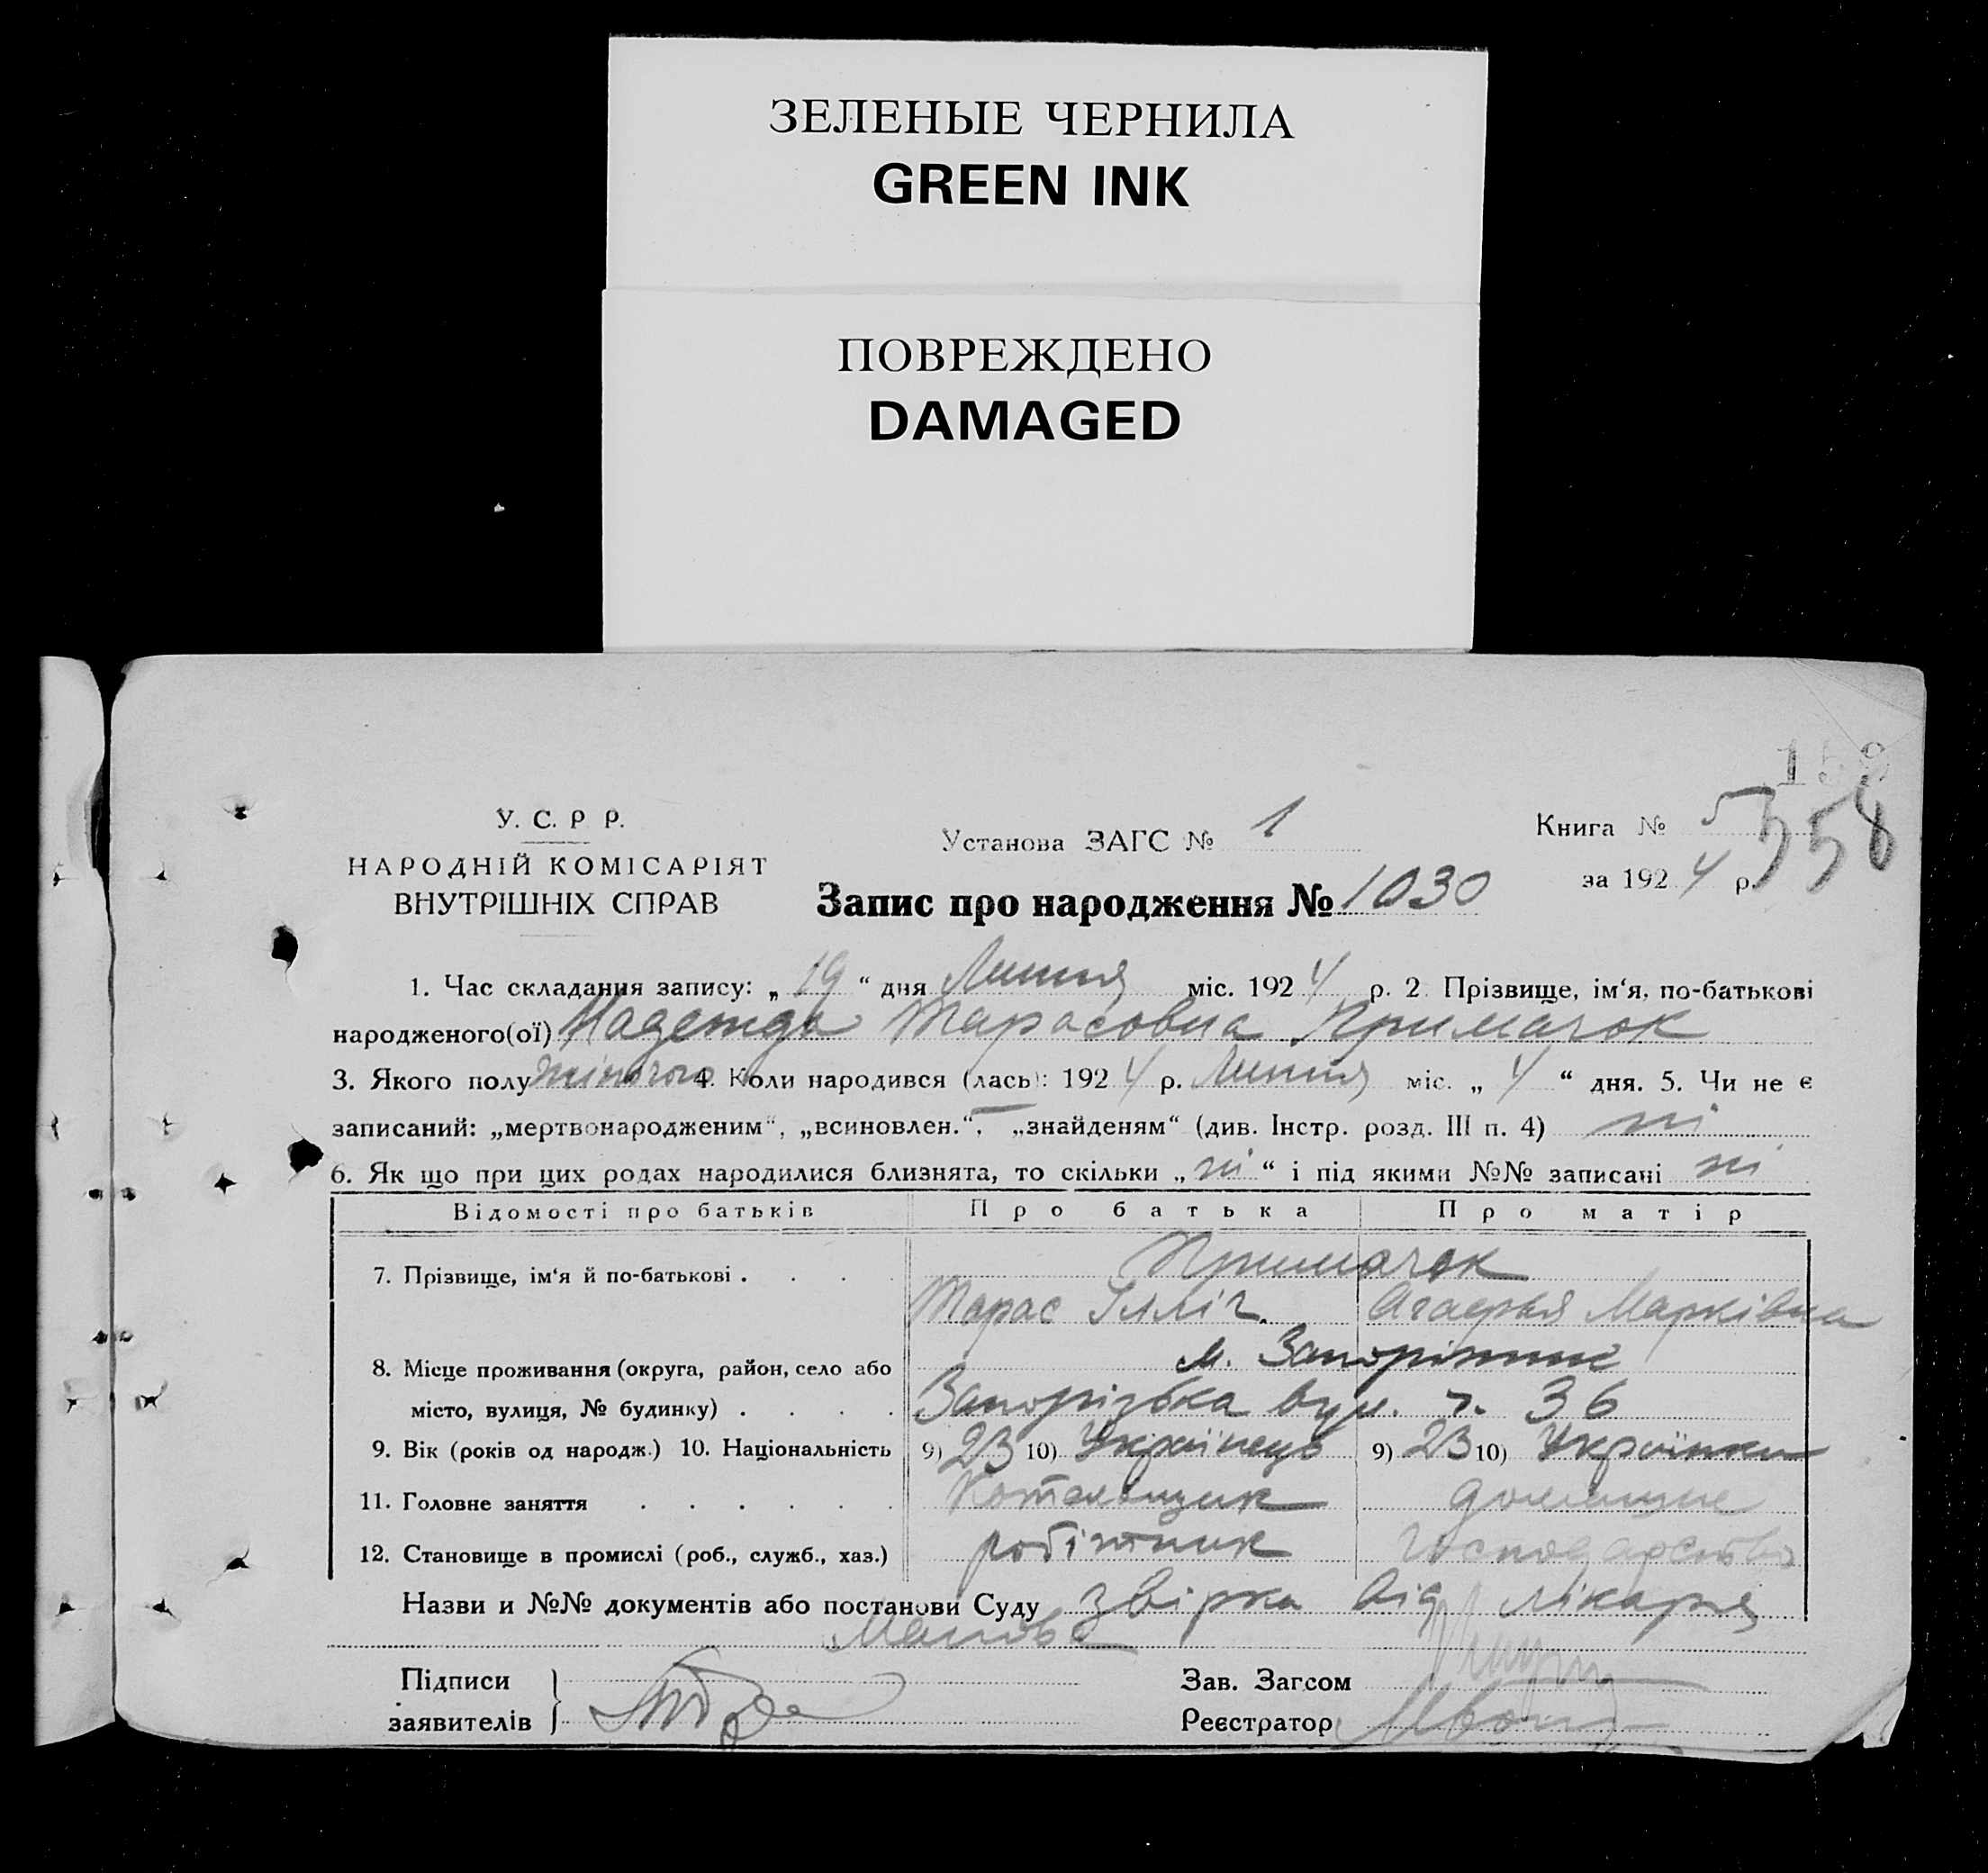 ЗЕЛЕНЫЕ ЧЕРНИЛА
GREEN INK
ПОВРЕЖДЕНО
DAMAGED
158
358
У. С. Р Р.
НАРОДНІЙ КОМІСАРІЯТ
ВНУТРІШНІХ СПРАВ
Установа ЗАГС № 1
Книга № 5
за 1924 р.
Запис про народження № 1030
1. Час складання запису: „19“ дня Липня міс. 1924 р. 2 Прізвище, ім‘я, по-батькові
народженого(ої) Надежда Тарасовна Примачок
3. Якого полу жіночого 4. Коли народився (лась): 1924 р. Липня міс. „4“ дня. 5. Чи не є
записаний: „мертвонародженим“, „всиновлен.“, „знайденям“ (див. Інстр. розд. III п. 4) ні
6. Як що при цих родах народилися близнята, то скільки „ні“ і під якими №№ записані ні
Відомості про батьків Про батька Про матір
7. Прізвище, ім‘я й по-батькові . . . . Примачок
Тарас Ілліч. Агафья Марківна
8. Місце проживання (округа, район, село або м. Запоріжжє
місто, вулиця, № будинку) . . . . Запорізька вул. ч. 36
9. Вік (років од народж.) 10. Національність 9) 23 10) Українець 9) 23 10) Українка
11. Головне заняття . . . . . . Котельщик домашне
12. Становище в промислі (роб., служб., хаз.) робітник господарство
Назви и №№ документів або постанови Суду звірка від лікаря
Підписи
заявителів
Зав. Загсом
Реєстратор